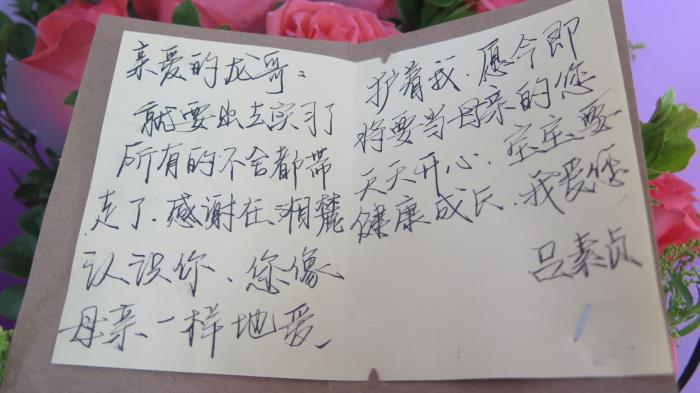 亲爱的龙哥：
就要出去实习了
所有的不舍都带
走了.感谢在湘麓
认识你、您像
母亲一样地爱、
护着我.愿今即
将要当母亲的您
天天开心、宝宝要
健康成长.我爱您
吕素贞